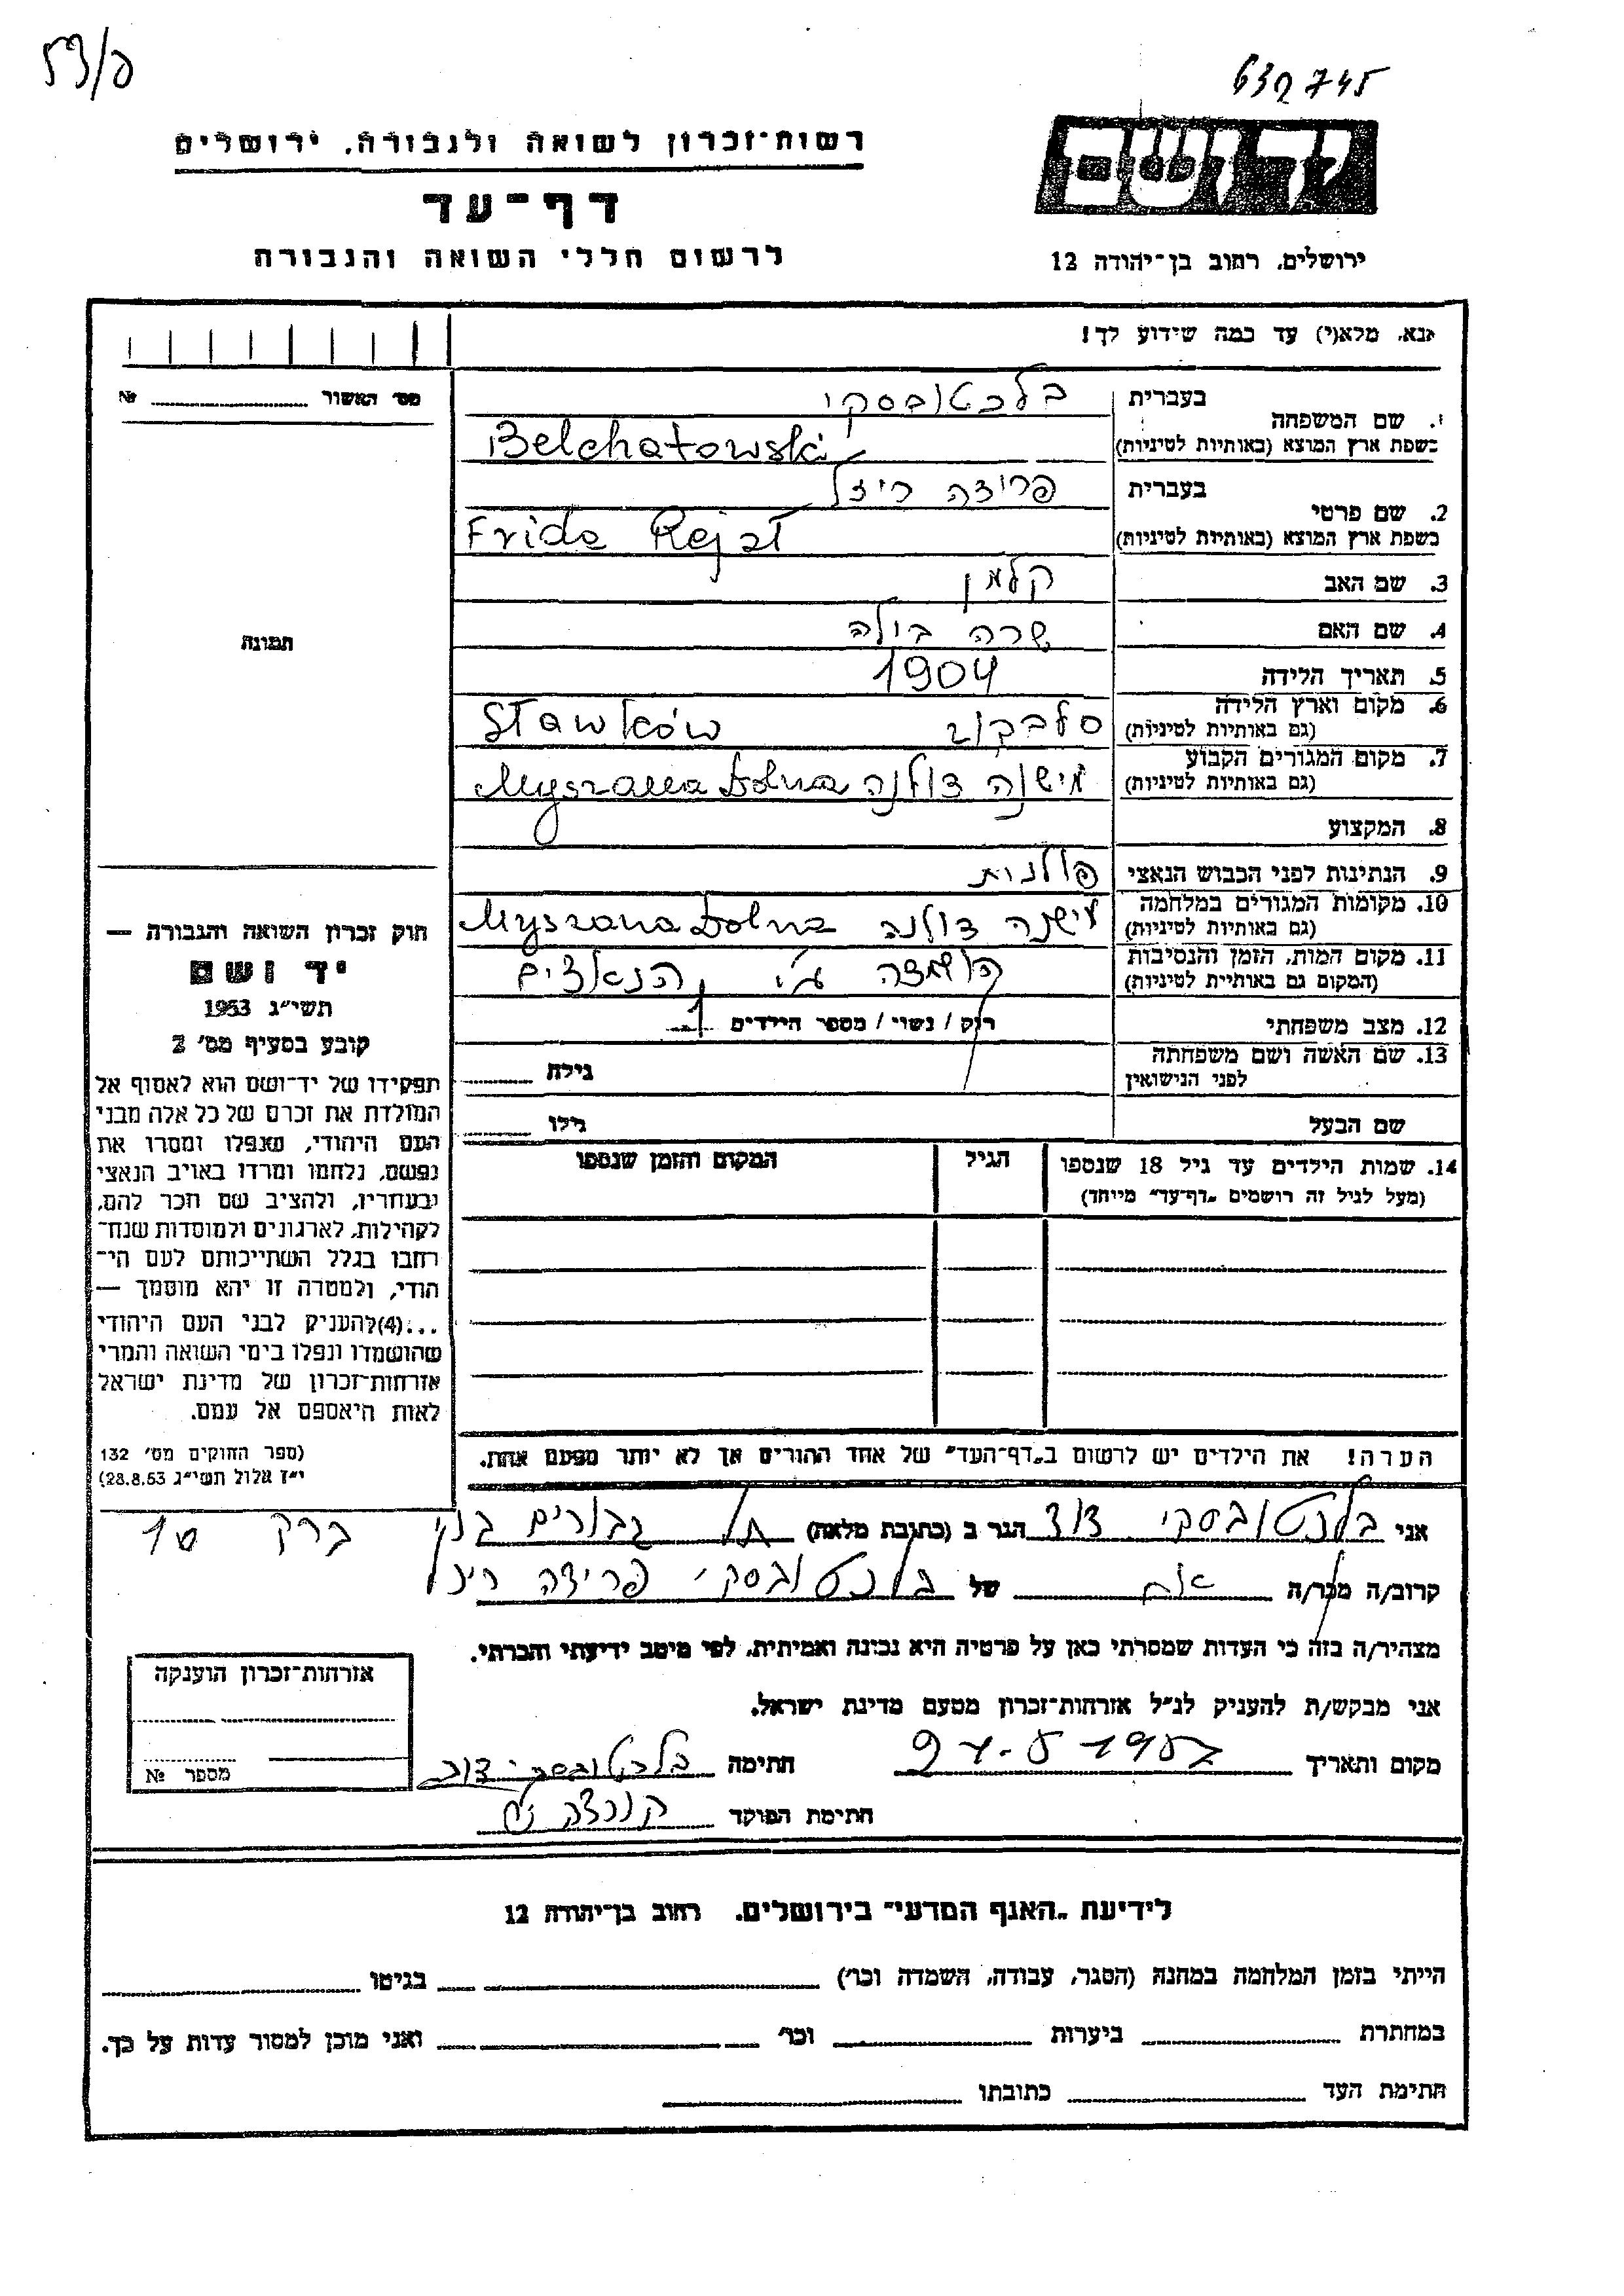 632745
רשות־זכרון לשואה ולגבורה, ירושלים
דף־עד
לרשום חללי השואה והגבורה
ירושלים, רחוב בן־יהודה 12
אנא, מלא(י) עד כמה שידוע לך!
מס׳ האשור № 
1. שם המשפחה
בעברית בלכטובסקי
בשפת ארץ המוצא (באותיות לטיניות) Belchatowski
2. שם פרטי
בעברית פרידה ריזל
בשפת ארץ המוצא (באותיות לטיניות) Frida Rejzl
3. שם האב קלמן
4. שם האם שרה בילה
5. תאריך הלידה 1904
6. מקום וארץ הלידה סלבקוב Sławków
(גם באותיות לטיניות)
7. מקום המגורים הקבוע מישנה דולנה Myszana Dolna
(גם באותיות לטיניות)
8. המקצוע
9. הנתינות לפני הכבוש הנאצי פולנית
10. מקומות המגורים במלחמה מישנה דולנה Myszana Dolna
(גם באותיות לטיניות)
11. מקום המות, הזמן והנסיבות הושמדה ע״י הנאצים
(המקום גם באותיית לטיניות)
12. מצב משפחתי רוק / נשוי / מספר הילדים 1
13. שם האשה ושם משפחתה גילה
לפני הנישואין
שם הבעל גילו
14. שמות הילדים עד גיל 18 שנספו הגיל המקום והזמן שנספו
(מעל לגיל זה רושמים „דף־עד״ מייחד)
הערה! את הילדים יש לרשום ב„דף־העד״ של אחד ההורים אך לא יותר מפעם אחת.
תמונה
חוק זכרון השואה והגבורה —
יד ושם
תשי״ג 1953
קובע בסעיף מס׳ 2
תפקידו של יד־ושם הוא לאסוף אל
המולדת את זכרם של כל אלה מבני
העם היהודי, שנפלו ומסרו את
נפשם, נלחמו ומרדו באויב הנאצי
ובעוזריו, ולהציב שם וזכר להם,
לקהילות, לארגונים ולמוסדות שנח־
רחבו בגלל השתייכותם לעם הי־
הודי, ולמטרה זו יהא מוסמך —
...(4)להעניק לבני העם היהודי
שהושמדו ונפלו בימי השואה והמרי
אזרחות־זכרון של מדינת ישראל
לאות היאספם אל עמם.
(ספר החוקים מס׳ 132
י״ז אלול תשי״ג 28.8.53)
אני בלכטובסקי דוד הגר ב (כתובת מלאה) תל גבורים בני ברק 10
קרוב/ה מכר/ה של בלכטובסקי פרידה ריזל
מצהיר/ה בזה כי העדות שמסרתי כאן על פרטיה היא נכונה ואמיתית, לפי מיטב ידיעתי והכרתי.
אני מבקש/ת להעניק לנ״ל אזרחות־זכרון מטעם מדינת ישראל.
מקום ותאריך חתימה בלכטובסקי דוד
חתימת הפוקד
אזרחות־זכרון הוענקה
מספר №
לידיעת „האגף המדעי״ בירושלים, רחוב בן־יהודה 12
הייתי בזמן המלחמה במחנה (הסגר, עבודה, השמדה וכו׳) בגיטו
במחתרת ביערות וכו׳ ואני מוכן למסור עדות על כך.
חתימת העד כתובתו